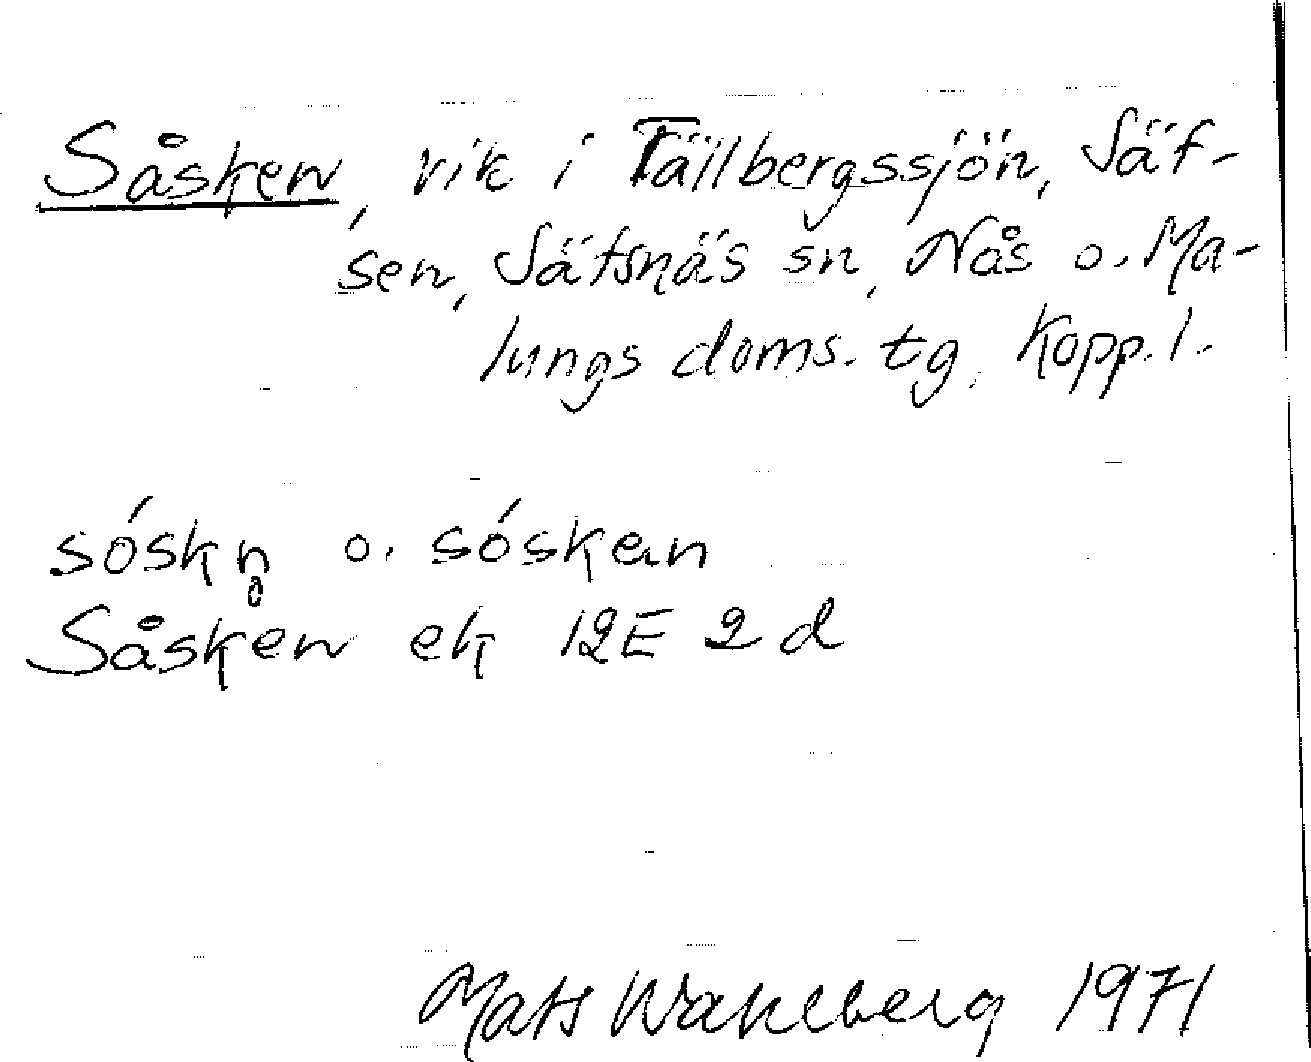 Såsken, vik i Tällbergssjön, Säf-
sen, Säfsnäs sn, Nås o. Ma-
lungs doms. tg, Kopp. l.
sóskn̥ o. sóskan
Såsken ek 12E 2d
Mats Wahlberg 1971